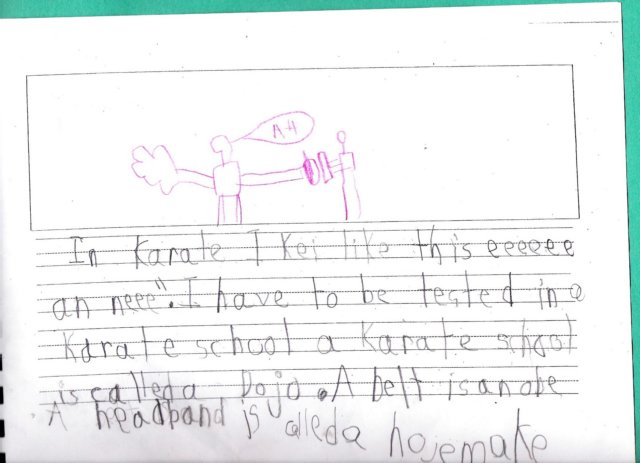 AH
In karate I kei like this eeeeee
an neee". I have to be tested in a
Karate school a Karate school
is called a Dojo. A belt is an obe
A headband is called a hojemake